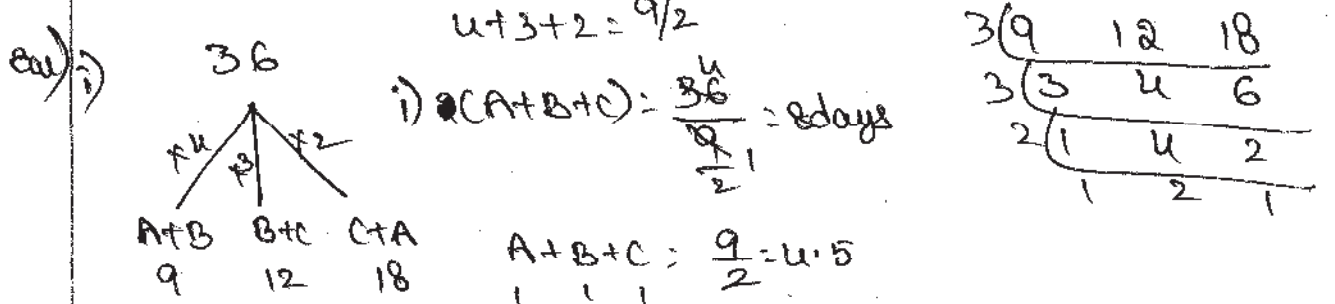 4+3+2 = 9/2
Sol) i) 36
×4 ×3 ×2
A+B B+C C+A
9 12 18
i) (A+B+C) = 36/(9/2) = 8days
4
1
A+B+C = 9/2 = 4.5
1 1 1
3(9 12 18
3(3 4 6
2(1 4 2
1 2 1